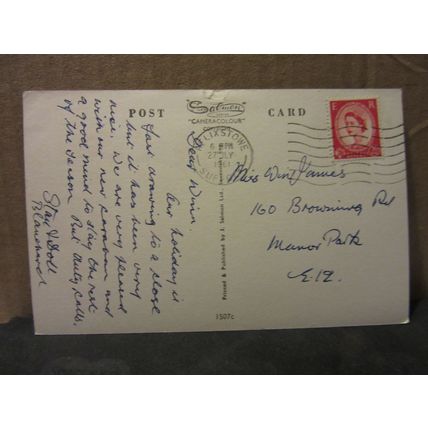 POST
CARD
Salmon
"CAMERACOLOUR"
FELIXSTOWE
6 PM
27 JLY
1961
SUFFOLK
E R
Dear Winn.
Our holiday is
fast drawing to a close
but it has been very
nice. We are very pleased
with our new caravan and
a good mind to stay the rest
of the season. But duty calls.
Stan & Doll
Miss Win James
160 Browning Rd
Manor Park
E.12.
Printed & Published by J. Salmon Ltd.
1507c